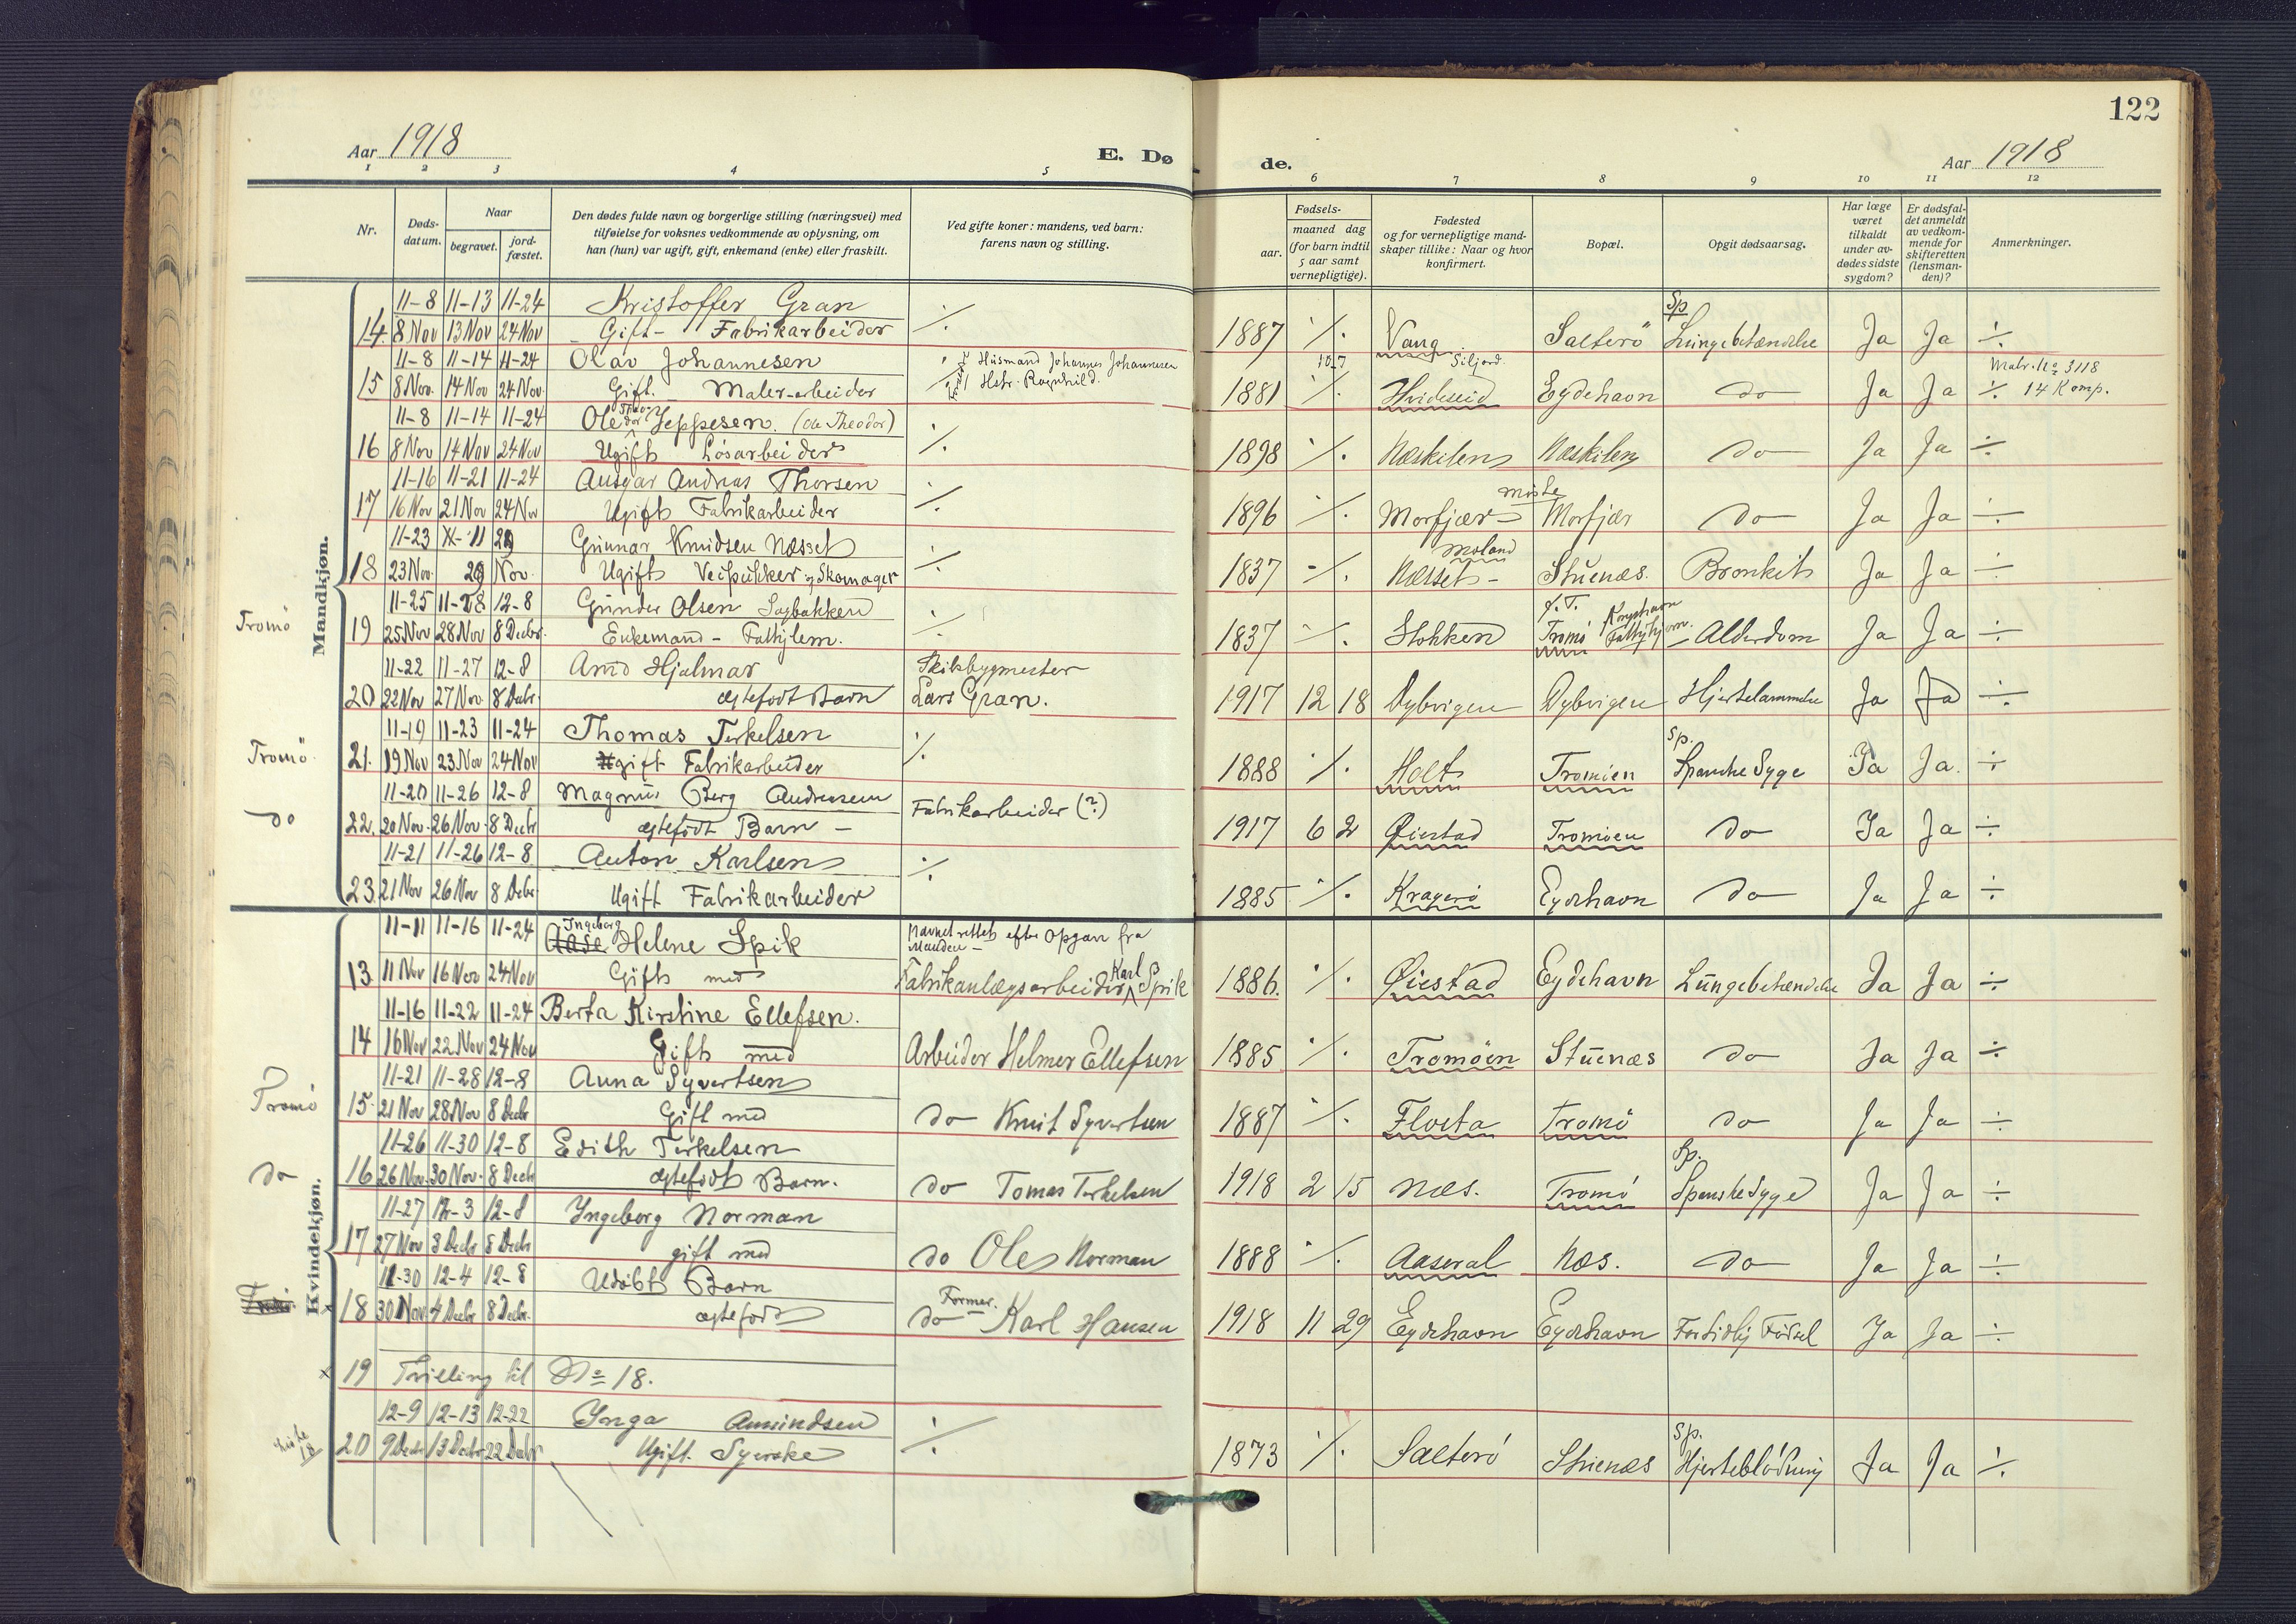 122
Aar 1918
E. Dø
de.
Aar 1918
1 2 3 4 5 6 7 8 9 10 11 12
Nr.
Døds-datum.
Naar
begravet.
jord-fæstet.
Den dødes fulde navn og borgerlige stilling (næringsvei) med
tilføielse for voksnes vedkommende av oplysning, om
han (hun) var ugift, gift, enkemand (enke) eller fraskilt.
Ved gifte koner: mandens, ved barn:
farens navn og stilling.
Fødsels-
aar.
maaned dag
(for barn indtil
5 aar samt
vernepligtige).
Fødested
og for vernepligtige mand-
skaper tillike: Naar og hvor
konfirmert.
Bopæl.
Opgit dødsaarsag.
Har læge
været
tilkaldt
under av-
dødes sidste
sygdom?
Er dødsfal-
det anmeldt
av vedkom-
mende for
skifteretten
(lensman-
den)?
Anmerkninger.
Mandkjøn.
11-8 11-13 11-24 Kristoffer Gran Sp.
14. 8 Nov 13 Nov 24 Nov Gift - Fabrikarbeider ·/· 1887 ·/· Vang Salterö Lungebetændelse Ja Ja ÷
11-8 11-14 11-24 Olav Johannesen Husmand Johannes Johannesen 10-7 Siljord Matr. No 3118
15 8 Nov. 14 Nov 24 Nov. Gift. - Maler-arbeider Hstr. Ragnhild. 1881 ·/· Hvideseid Eydehavn do Ja Ja ÷ 14 Komp.
11-8 11-14 11-24 Ole Teodor Jeppesen. (Ole Theodor)
16 8 Nov 14 Nov 24 Nov Ugift Løsarbeider ·/· 1898 ·/· Næskilen Næskilen do Ja Ja ÷
11-16 11-21 11-24 Ansgar Andreas Thorsen
17 16 Nov 21 Nov 24 Nov Ugift Fabrikarbeider ·/· 1896 ·/· Morfjær - Morfjær do Ja Ja ÷
11-23 11 29 Gunnar Knudsen Næsset Moland
18 23 Nov. 29 Nov. Ugift Veipukker og Skomager ·/· 1837 ·/· Næsset - Stuenæs. Bronkit Ja Ja ÷
11-25 11-28 12-8 Gunder Olsen Sagbakken f. T.
Tromö 19 25 Nov 28 Nov 8 Decbr. Enkemand - Fattiglem. ·/· 1837 ·/· Stokken Tromö - Alderdom Ja Ja ÷
11-22 11-27 12-8 Arvid Hjalmar Skibsbygmester
20 22 Nov 27 Nov 8 Decbr. ægtefödt Barn Lars Gran. 1917 12 18 Dybvigen Dybvigen Hjertelammelse Ja Ja ÷
11-19 11-23 11-24 Thomas Terkelsen Sp.
Tromö 21. 19 Nov 23 Nov 24 Nov gift Fabrikarbeider ·/· 1888 ·/· Holt Tromöen Spanske Syge Ja Ja. ÷
11-20 11-26 12-8 Magnus Berg Andreassen Fabrikarbeider (?)
do 22. 20 Nov. 26 Nov. 8 Decbr ægtefödt Barn - 1917 6 2 Øiestad Tromöen do Ja Ja ÷
11-21 11-26 12-8 Anton Karlsen
23. 21 Nov 26 Nov 8 Decbr Ugift Fabrikarbeider ·/· 1885 ·/· Kragerö Eydehavn do Ja Ja ÷
Kvindekjøn.
11-11 11-16 11-24 Aase Ingeborg Helene Spik Navnet rettet efter Opgave fra Manden -
13 11 Nov 16 Nov 24 Nov Gift med Fabrikanlægsarbeider Karl Spik 1886. ·/· Øiestad Eydehavn Lungebetændelse Ja Ja ÷
11-16 11-22 11-24 Berta Kirstine Ellefsen.
14 16 Nov 22 Nov 24 Nov Gift med Arbeider Helmer Ellefsen 1885 ·/· Tromöen Stuenæs do Ja Ja ÷
11-21 11-28 12-8 Anna Syvertsen
Tromö 15. 21 Nov 28 Nov 8 Decbr Gift med do Knut Syvertsen 1887 ·/· Flosta Tromö do Ja Ja ÷
11-26 11-30 12-8 Edith Terkelsen Sp.
do 16 26 Nov. 30 Nov. 8 Decbr ægtefödt Barn. do Tomas Terkelsen 1918 2 15 Næs. Tromö Spanske Syge Ja Ja ÷
11-27 12-3 12-8 Ingeborg Norman
17 27 Nov 3 Decbr 8 Decbr gift med do Ole Norman 1888 ·/· Aaseral Næs. do Ja Ja ÷
11-30 12-4 12-8 Udöbt Barn Former.
x 18 30 Nov. 4 Decbr 8 Decbr. ægtefödt do - Karl Hansen 1918 11 29 Eydehavn Eydehavn Fortidlig Födsel Ja Ja ÷
x 19 Tvilling til No 18.
12-9 12-13 12-22 Inga Amundsen Sp.
20 9 Decbr 13 Decbr 22 Decbr Ugift. Syerske ·/· 1873 ·/· Salterö Stuenæs Hjerteblödning Ja Ja ·/·